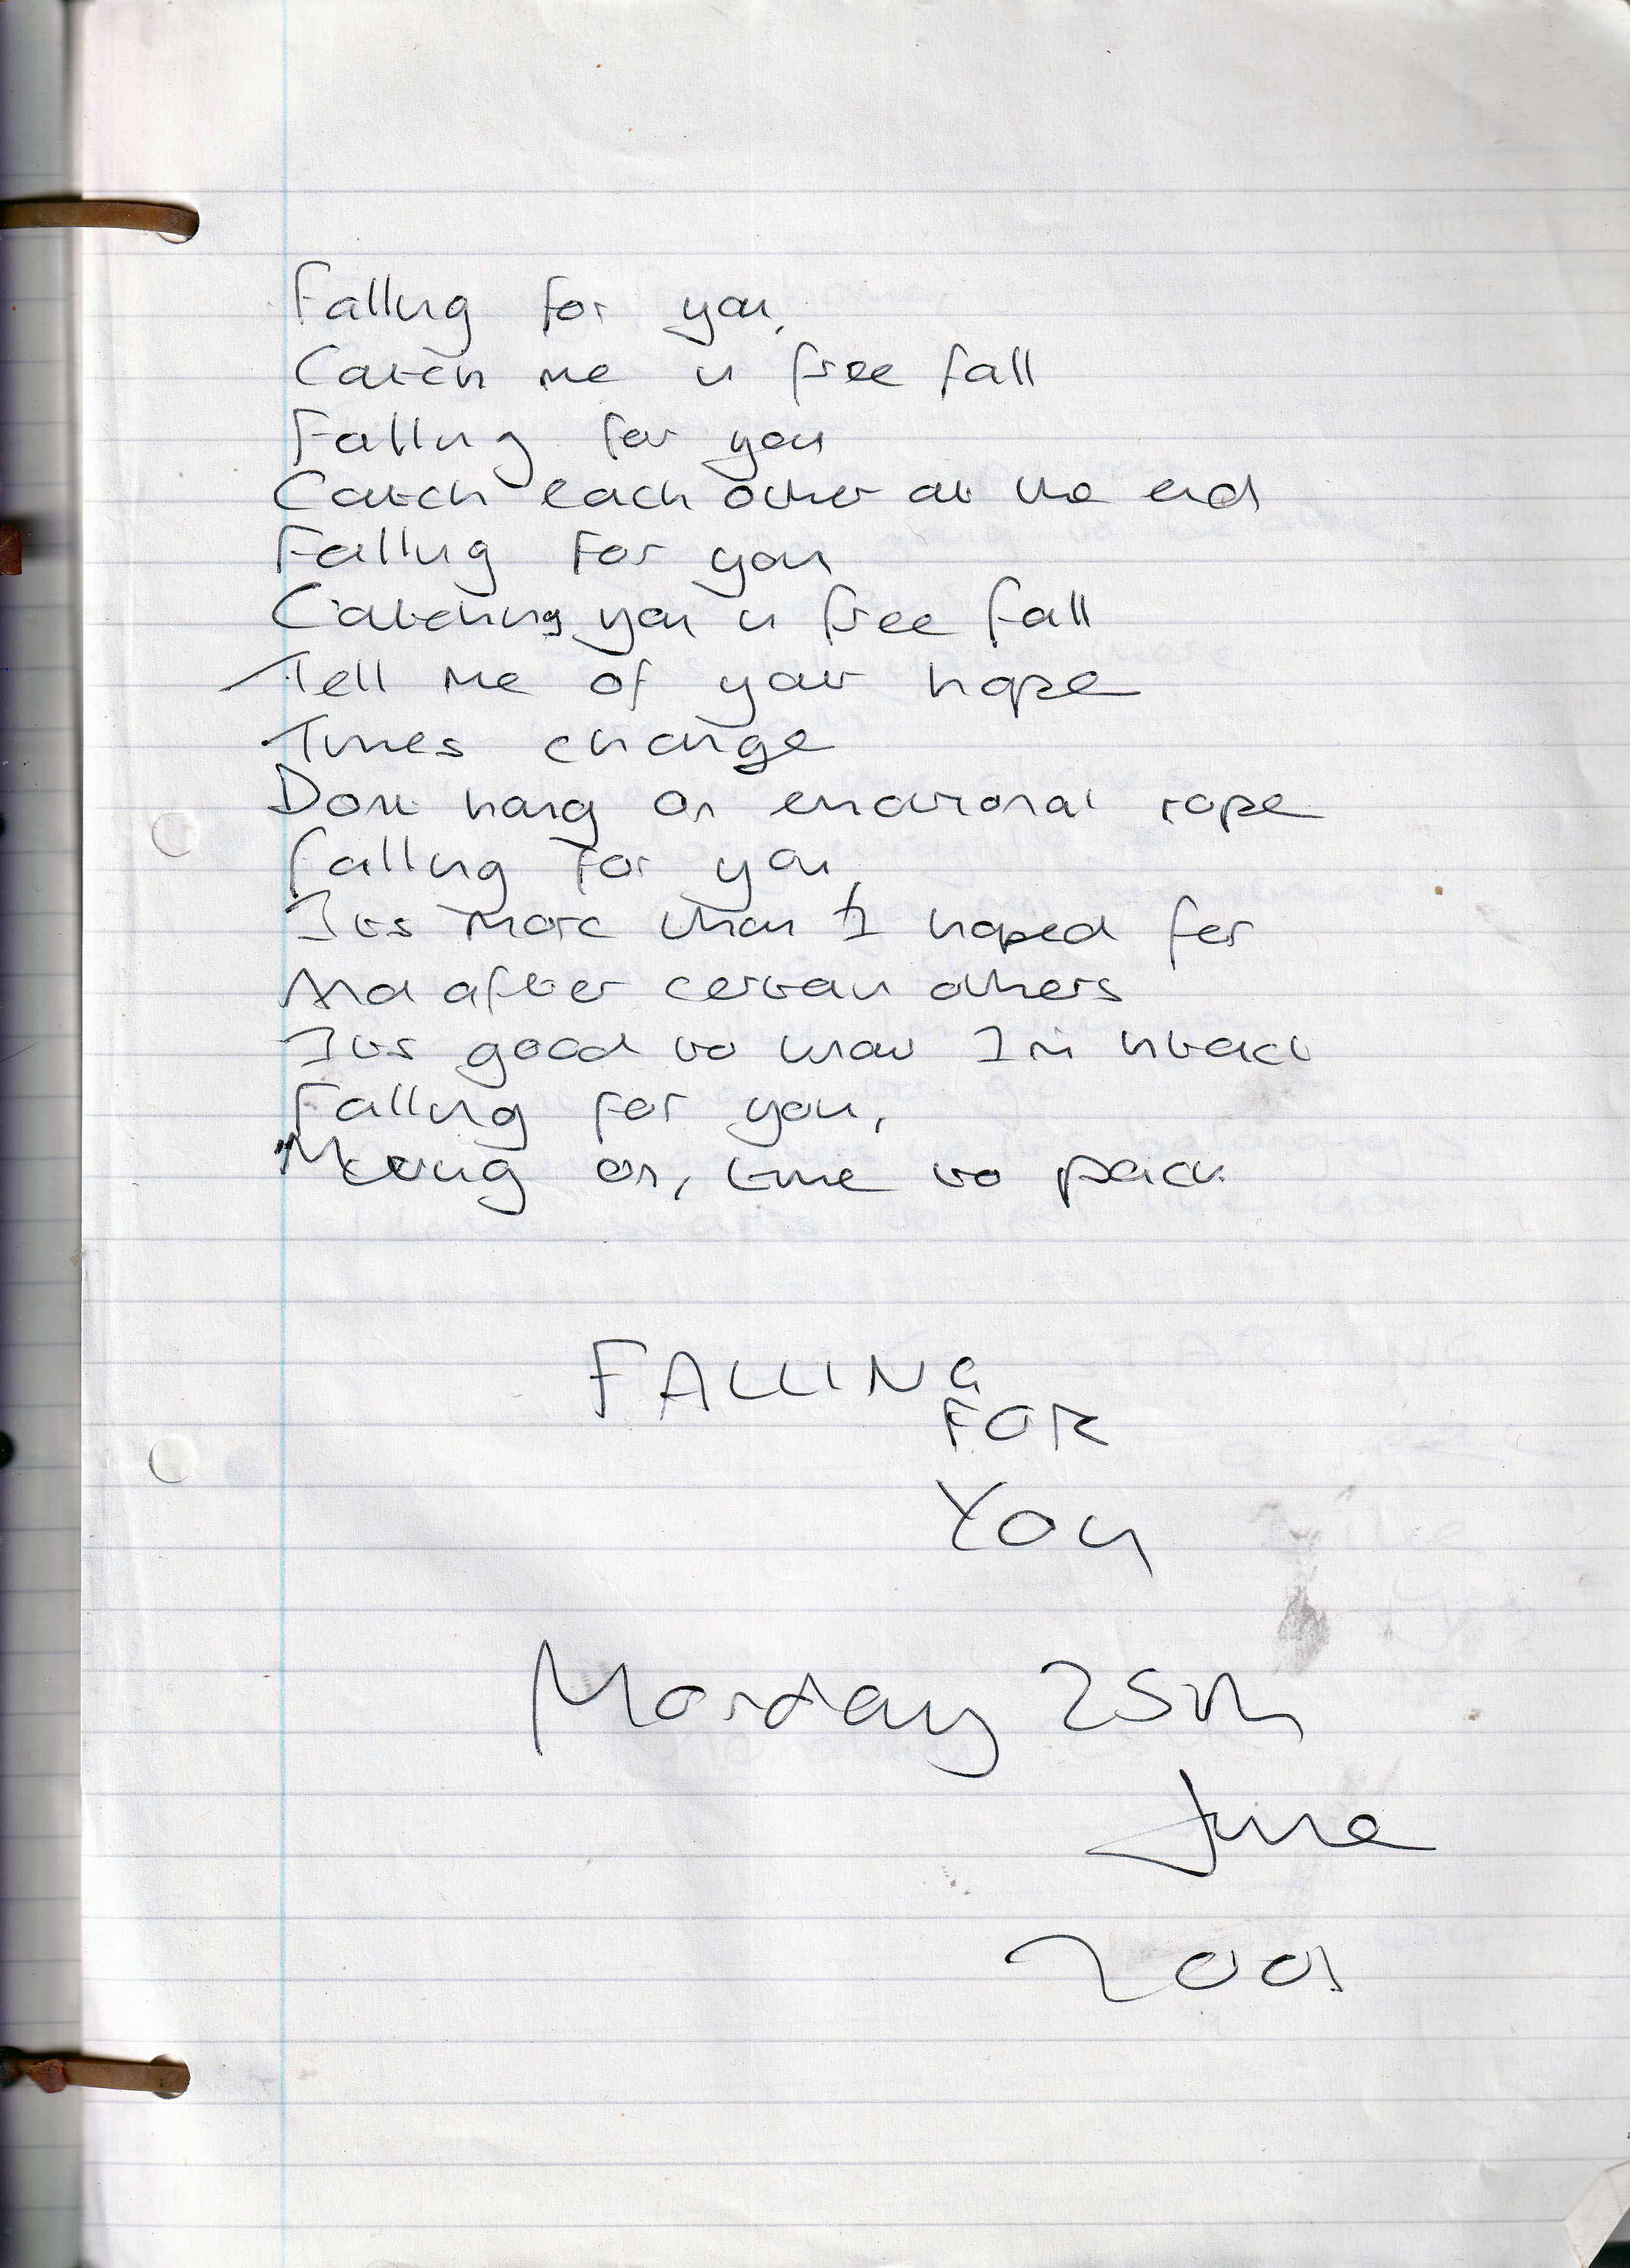 Falling for you,
Catch me in free fall
Falling for you
Catch each other at the end
Falling for you
Catching you in free fall
Tell me of your hope
Times change
Dont hang on emotional rope
Falling for you,
Its more than I hoped for
And after certain others
Its good to know Im intact
Falling for you,
Moving on, time to pack
FALLING
FOR
YOU
Monday 25th
June
2001